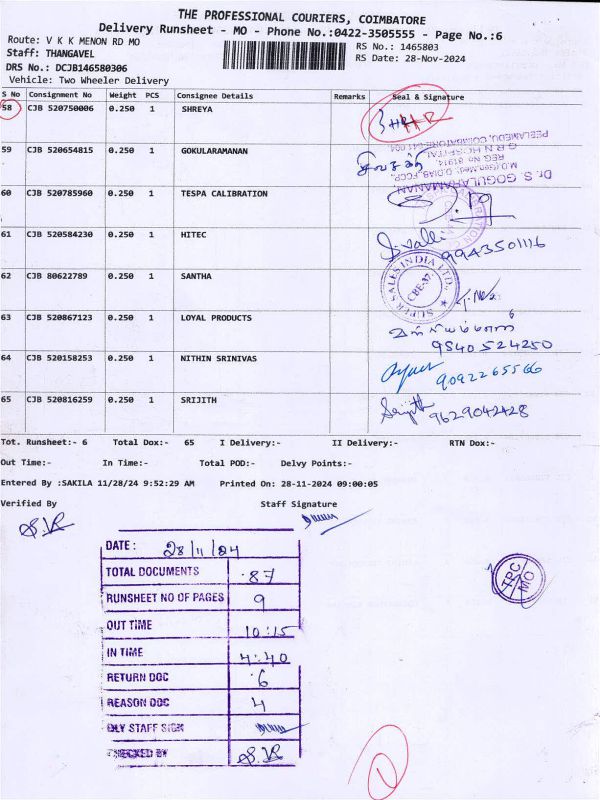 THE PROFESSIONAL COURIERS, COIMBATORE
Delivery Runsheet - MO - Phone No.:0422-3505555 - Page No.:6
Route: V K K MENON RD MO
RS No.: 1465803
Staff: THANGAVEL
RS Date: 28-Nov-2024
DRS No.: DCJB146580306
Vehicle: Two Wheeler Delivery
S No Consignment No Weight PCS Consignee Details Remarks Seal & Signature
58 CJB 520750006 0.250 1 SHREYA
59 CJB 520654815 0.250 1 GOKULARAMANAN
Dr. S. GOGULARAMANAN
M.D.(Gen.Med), D.DIAB, FCCP,
REG No 81914
G R N HOSPITAL
PEELAMEDU, COIMBATORE-641 004
60 CJB 520785960 0.250 1 TESPA CALIBRATION
61 CJB 520584230 0.250 1 HITEC
9943501116
62 CJB 80622789 0.250 1 SANTHA
SUPER SALES INDIA LTD.
CBE-37.
63 CJB 520867123 0.250 1 LOYAL PRODUCTS
9540524250
64 CJB 520158253 0.250 1 NITHIN SRINIVAS
9092265566
65 CJB 520816259 0.250 1 SRIJITH
Srijith 9629042428
Tot. Runsheet:- 6 Total Dox:- 65 I Delivery:- II Delivery:- RTN Dox:-
Out Time:- In Time:- Total POD:- Delvy Points:-
Entered By :SAKILA 11/28/24 9:52:29 AM Printed On: 28-11-2024 09:00:05
Verified By Staff Signature
DATE : 28/11/24
TOTAL DOCUMENTS 87
RUNSHEET NO OF PAGES 9
OUT TIME 10:15
IN TIME 4:40
RETURN DOC 6
REASON DOC 4
DLY STAFF SIGN
CHECKED BY
TPC
MO